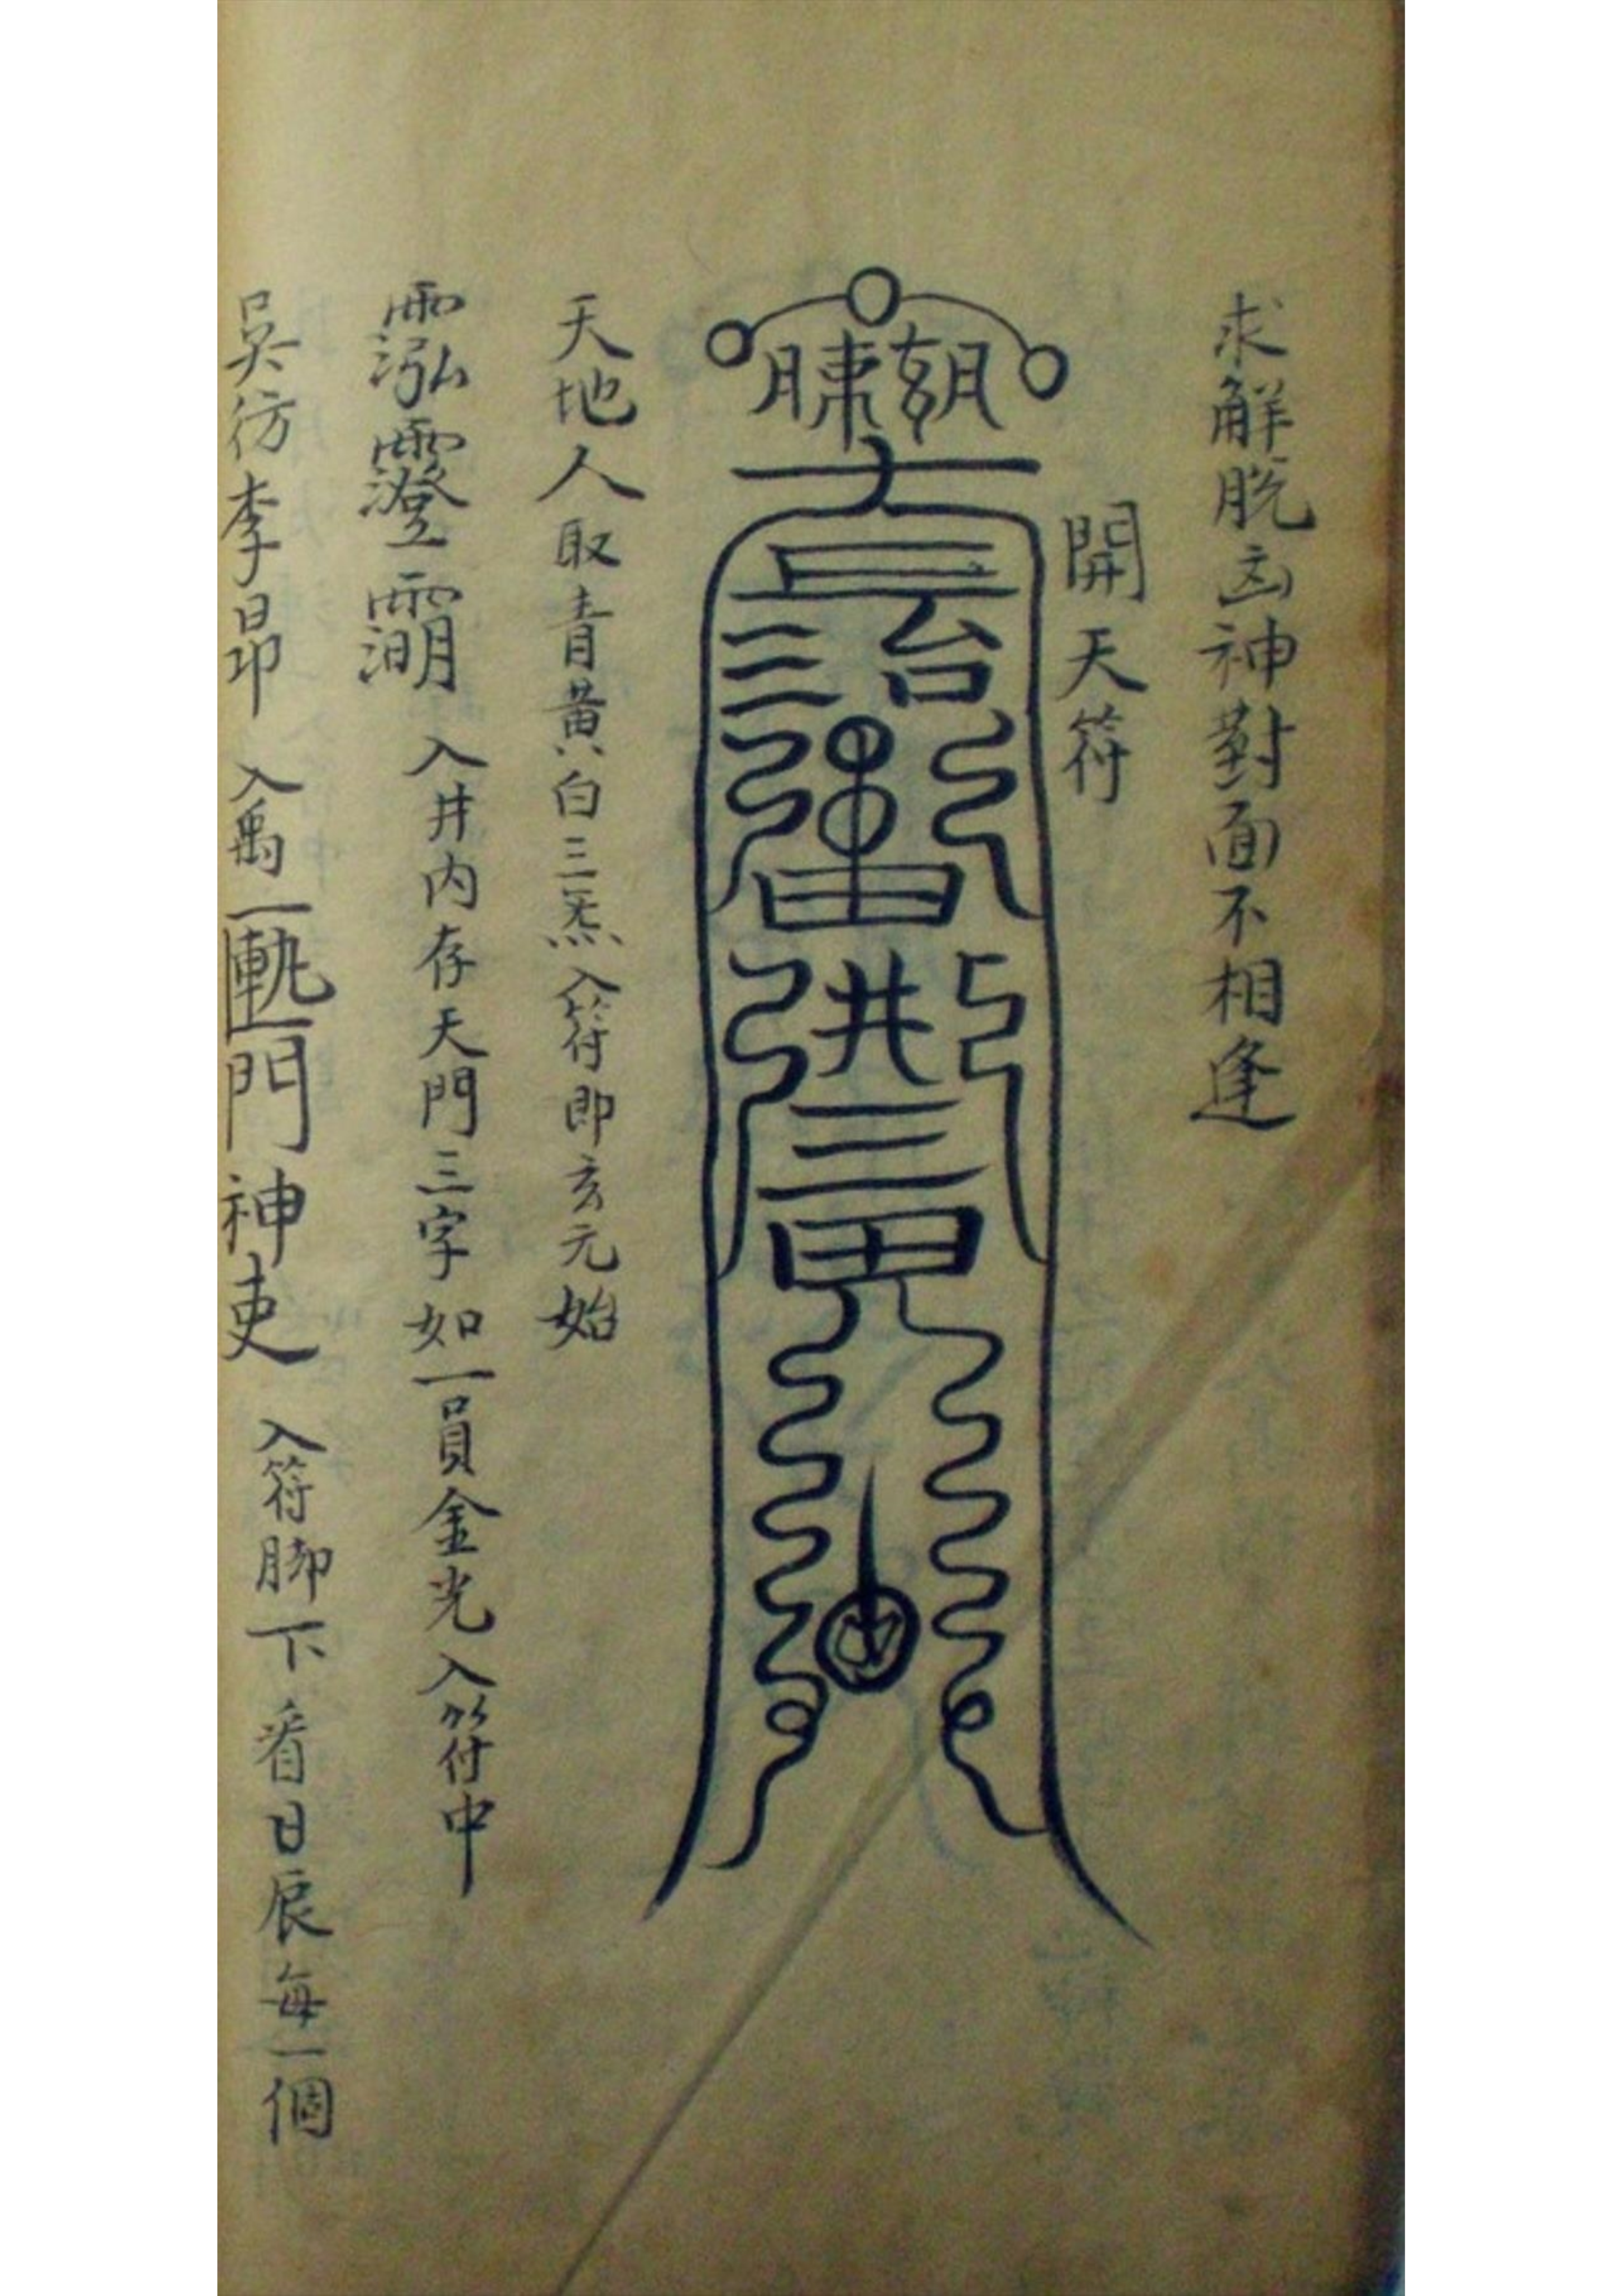 求解脱凶神對面不相逢
開天符
三台
洪
三
天地人取青黃白三炁入符即玄元始
入井內存天門三字如一員金光入符中
吳彷李昻 入禹 門神吏 入符脚下看日辰每一個